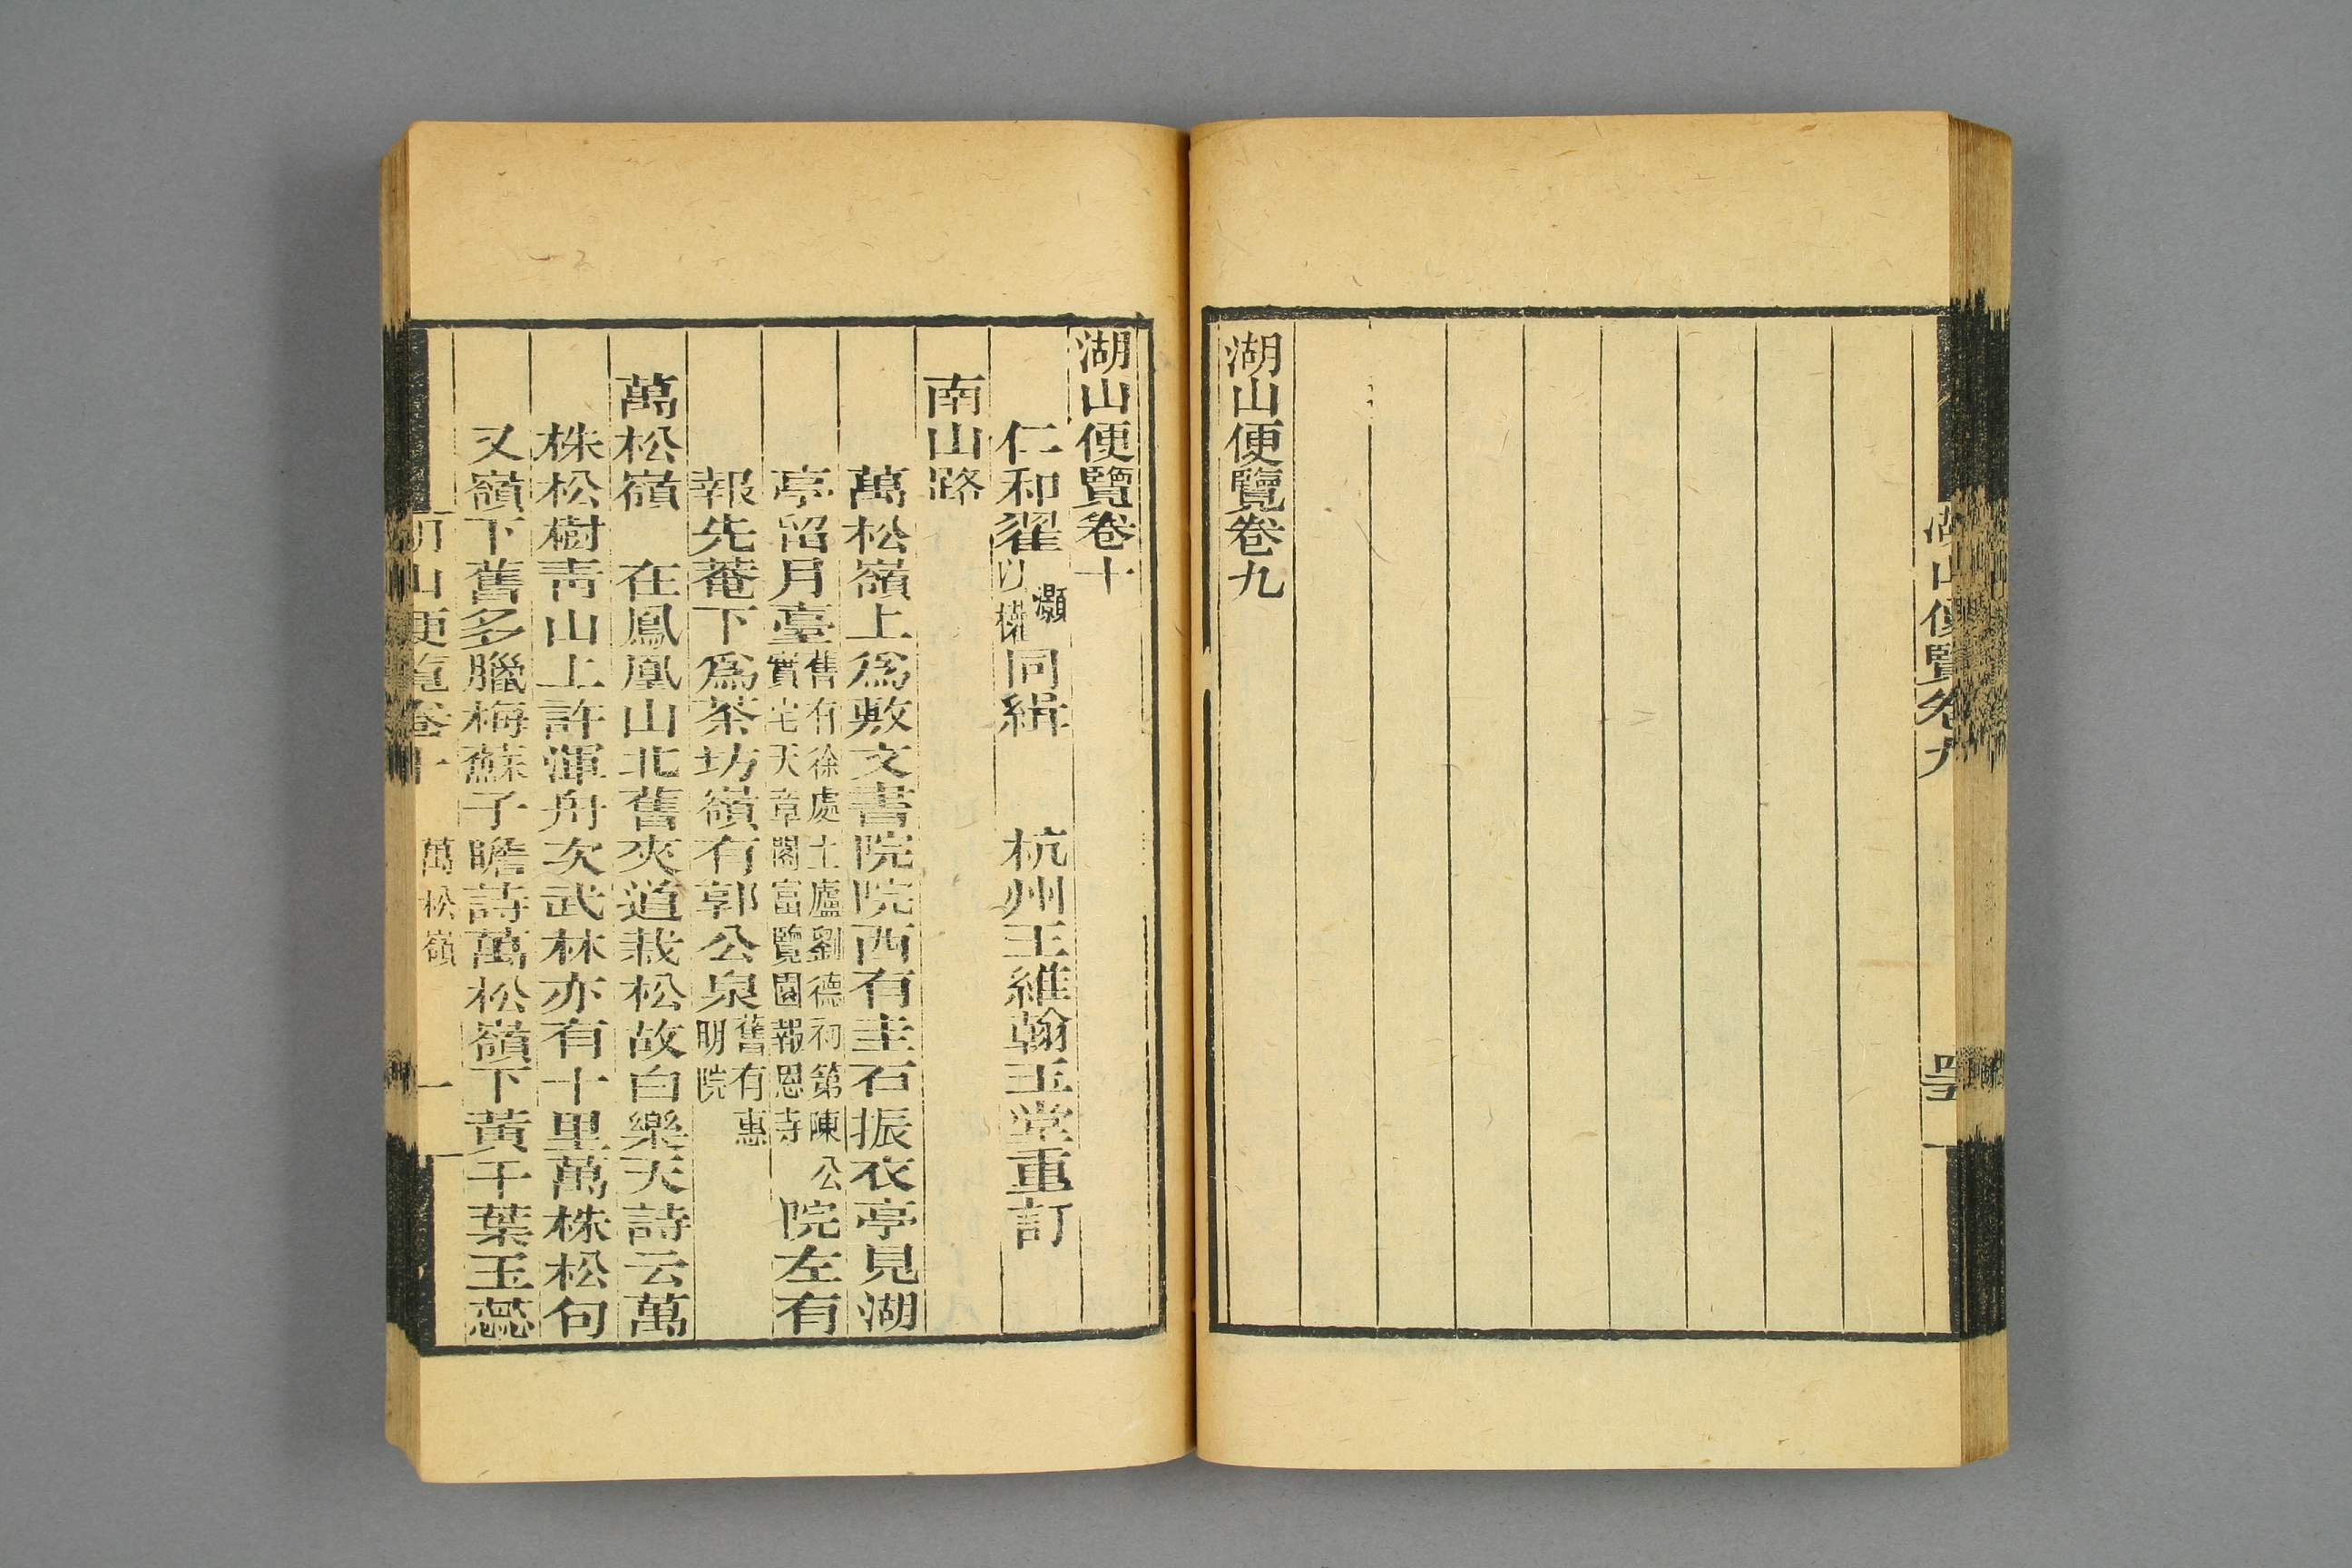 湖山便覽卷九
四十五
湖山便覽卷九
湖山便覽卷十
仁和翟灝以橫同緝 杭州王維翰玉堂重訂
南山路
萬松嶺上爲敷文書院院西有圭石振衣亭見湖
亭留月臺舊有徐處士廬劉德初第陳公寶宅天章閣富覽園報恩寺院左有
報先菴下爲茶坊嶺有郭公泉舊有惠明院
萬松嶺 在鳳凰山北舊夾道栽松故白樂天詩云萬
株松樹靑山上許渾舟次武林亦有十里萬株松句
又嶺下舊多臘梅蘇子瞻詩萬松嶺下黃千葉玉蕊
湖山便覽卷十 萬松嶺 一